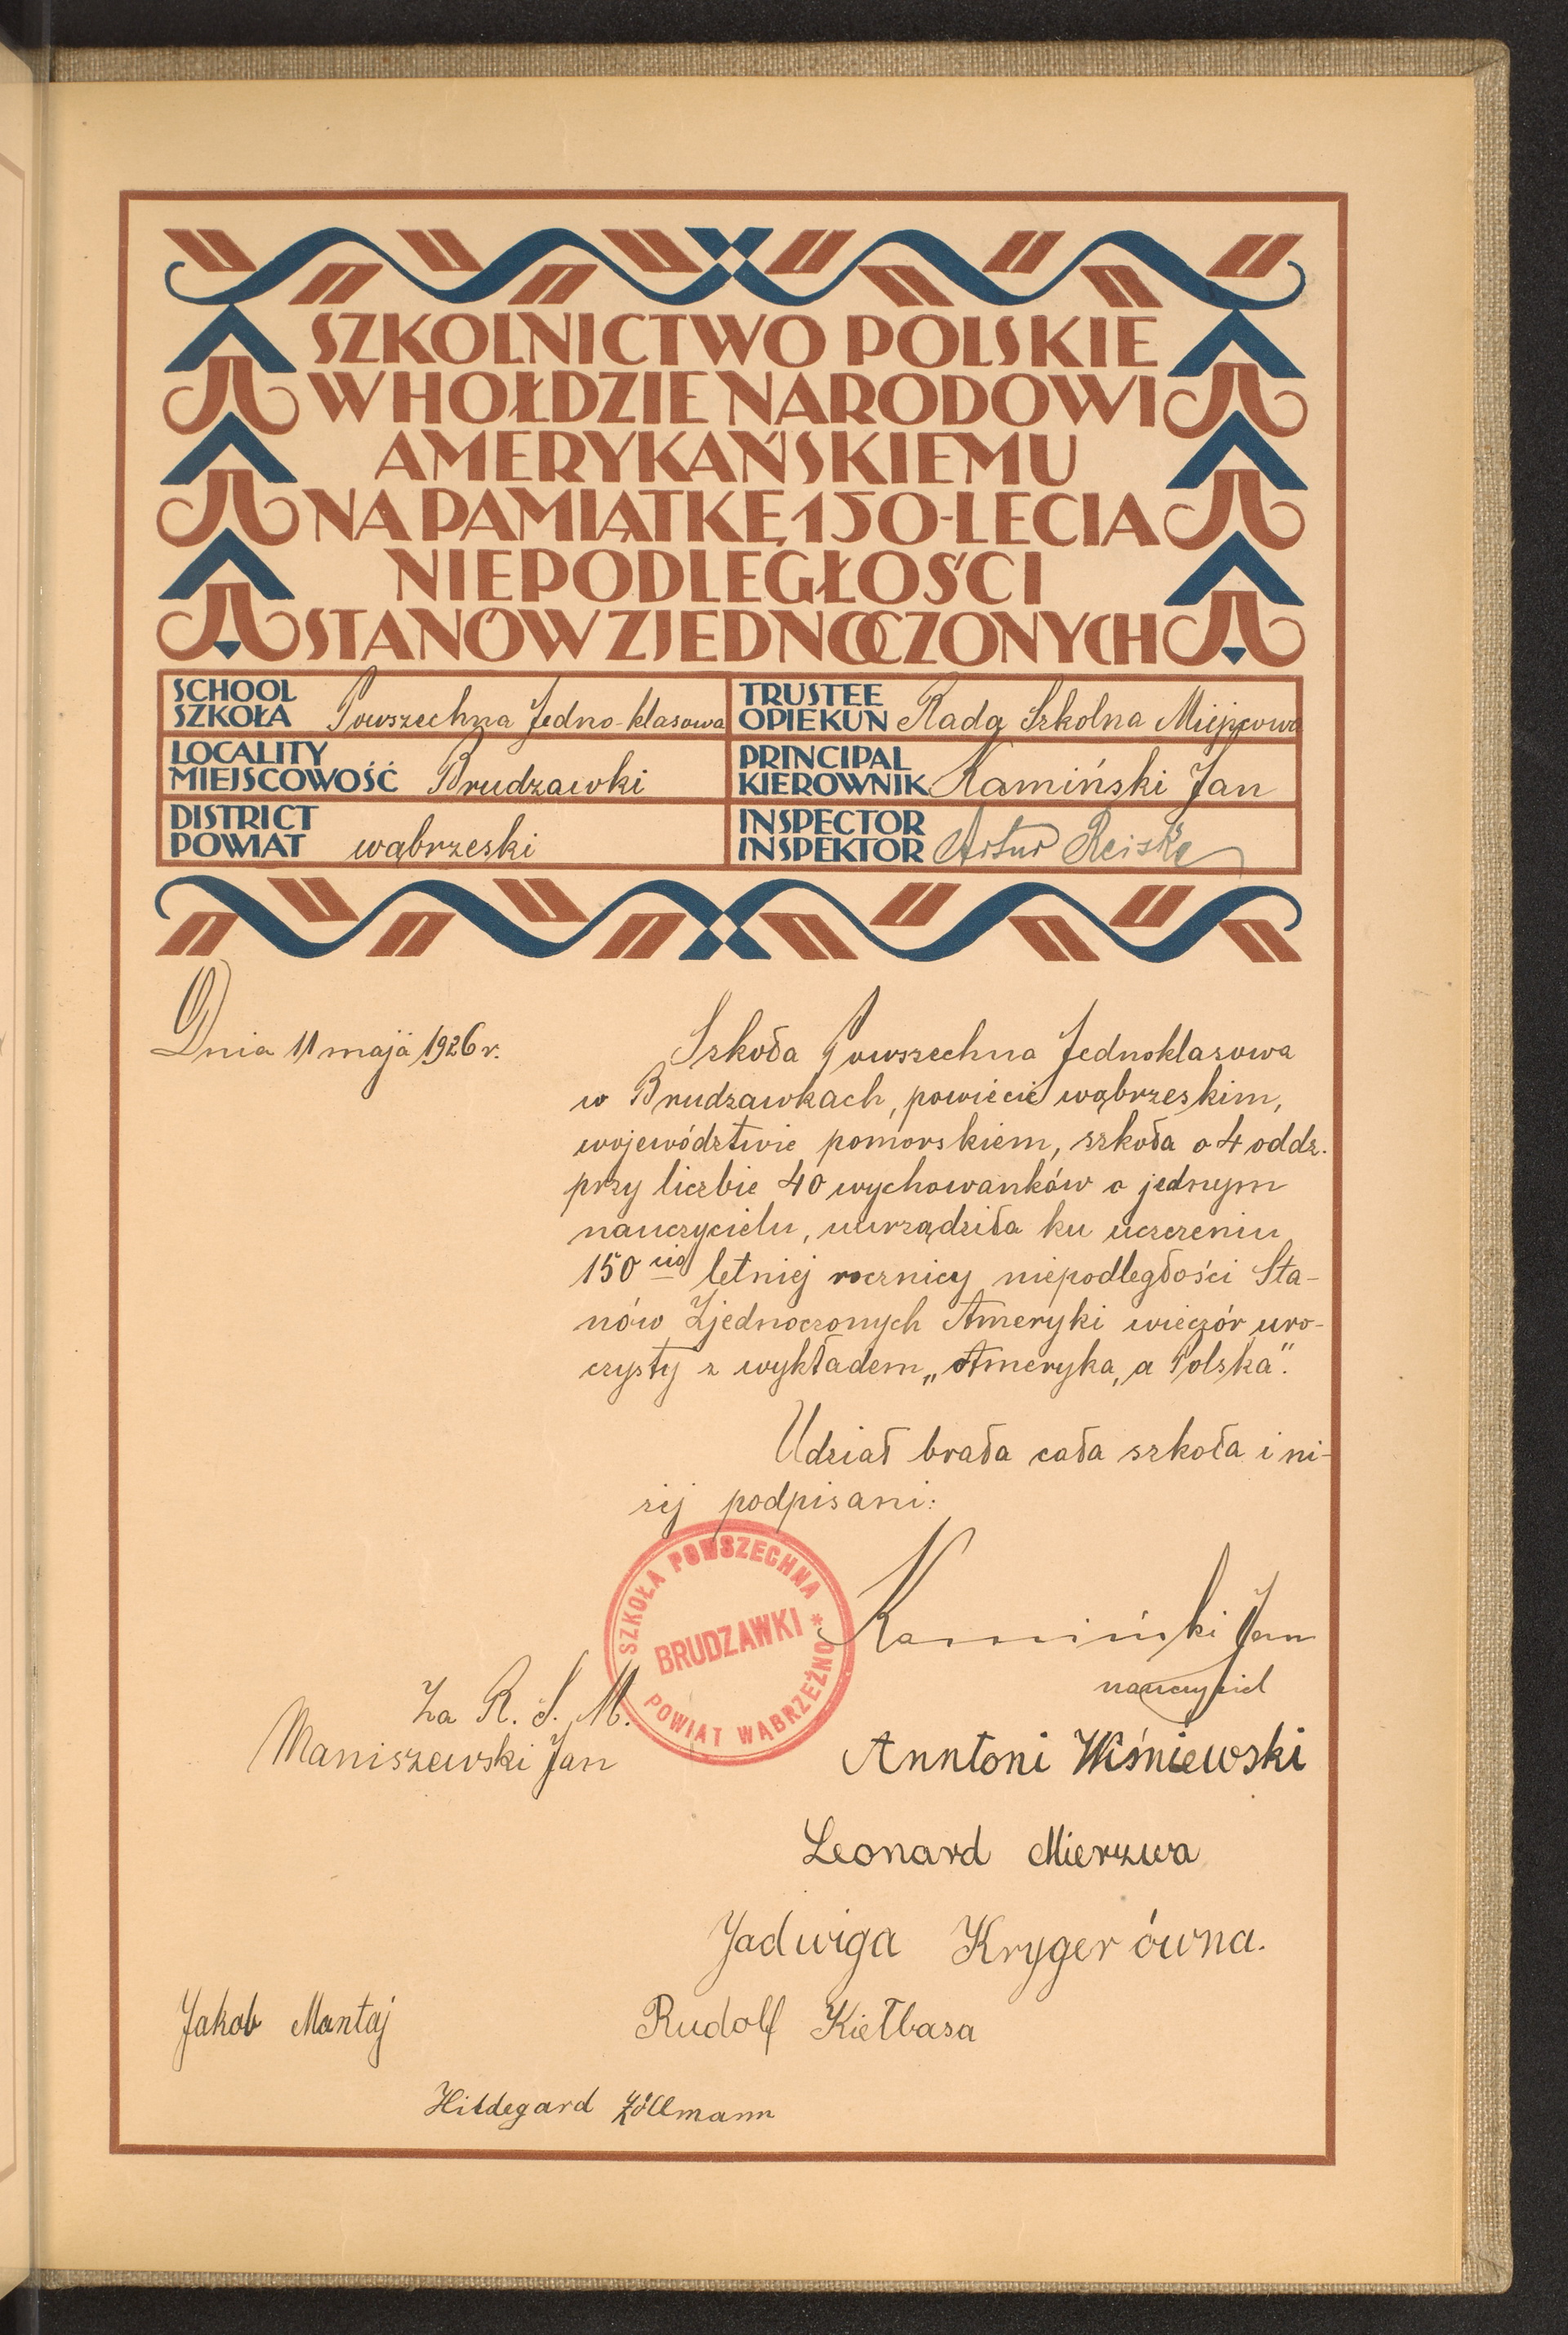 SZKOLNICTWO POLSKIE
W HOŁDZIE NARODOWI
AMERYKAŃSKIEMU
NA PAMIĄTKĘ 150-LECIA
NIEPODLEGŁOŚCI
STANÓW ZJEDNOCZONYCH
SCHOOL
SZKOŁA Powszechna Jedno-klasowa
TRUSTEE
OPIEKUN Rada Szkolna Miejscowa
LOCALITY
MIEJSCOWOŚĆ Brudzawki
PRINCIPAL
KIEROWNIK Kamiński Jan
DISTRICT
POWIAT wąbrzeski
INSPECTOR
INSPEKTOR Artur Reiske
Dnia 11 maja 1926 r.
Szkoła Powszechna Jednoklasowa
w Brudzawkach, powiecie wąbrzeskim,
województwie pomorskiem, szkoła o 4 oddz.
przy liczbie 40 wychowanków o jednym
nauczycielu, uurządziła ku uczczeniu
150 cio letniej rocznicy niepodległości Sta-
nów Zjednoczonych Ameryki wieczór uro-
czysty z wykładem „Ameryka, a Polska".
Udział brała cała szkoła i ni-
żej podpisani:
SZKOŁA POWSZECHNA *
BRUDZAWKI
POWIAT WĄBRZEŹNO
Kamiński Jan
nauczyciel
Za R. S. M.
Maniszewski Jan
Anntoni Wiśniewski
Leonard Mierzwa
Jadwiga Krygerówna.
Jakob Mantaj
Rudolf Kiełbasa
Hildegard Zöllmann